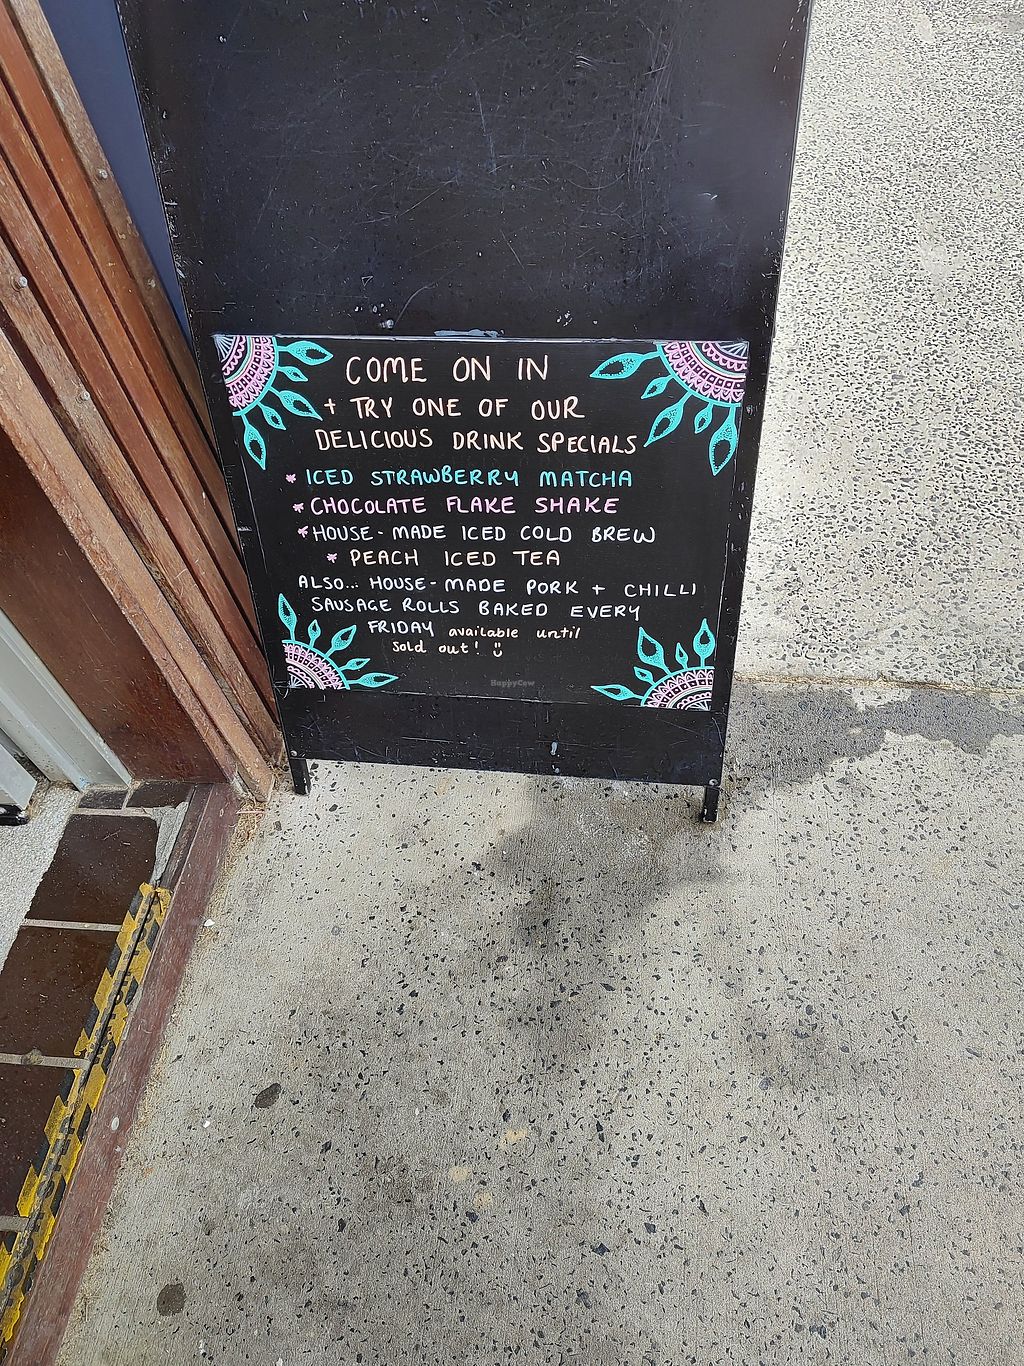 COME ON IN
+ TRY ONE OF OUR
DELICIOUS DRINK SPECIALS
* ICED STRAWBERRY MATCHA
* CHOCOLATE FLAKE SHAKE
* HOUSE-MADE ICED COLD BREW
* PEACH ICED TEA
ALSO... HOUSE-MADE PORK + CHILLI
SAUSAGE ROLLS BAKED EVERY
FRIDAY available until
sold out! ü
HappyCow